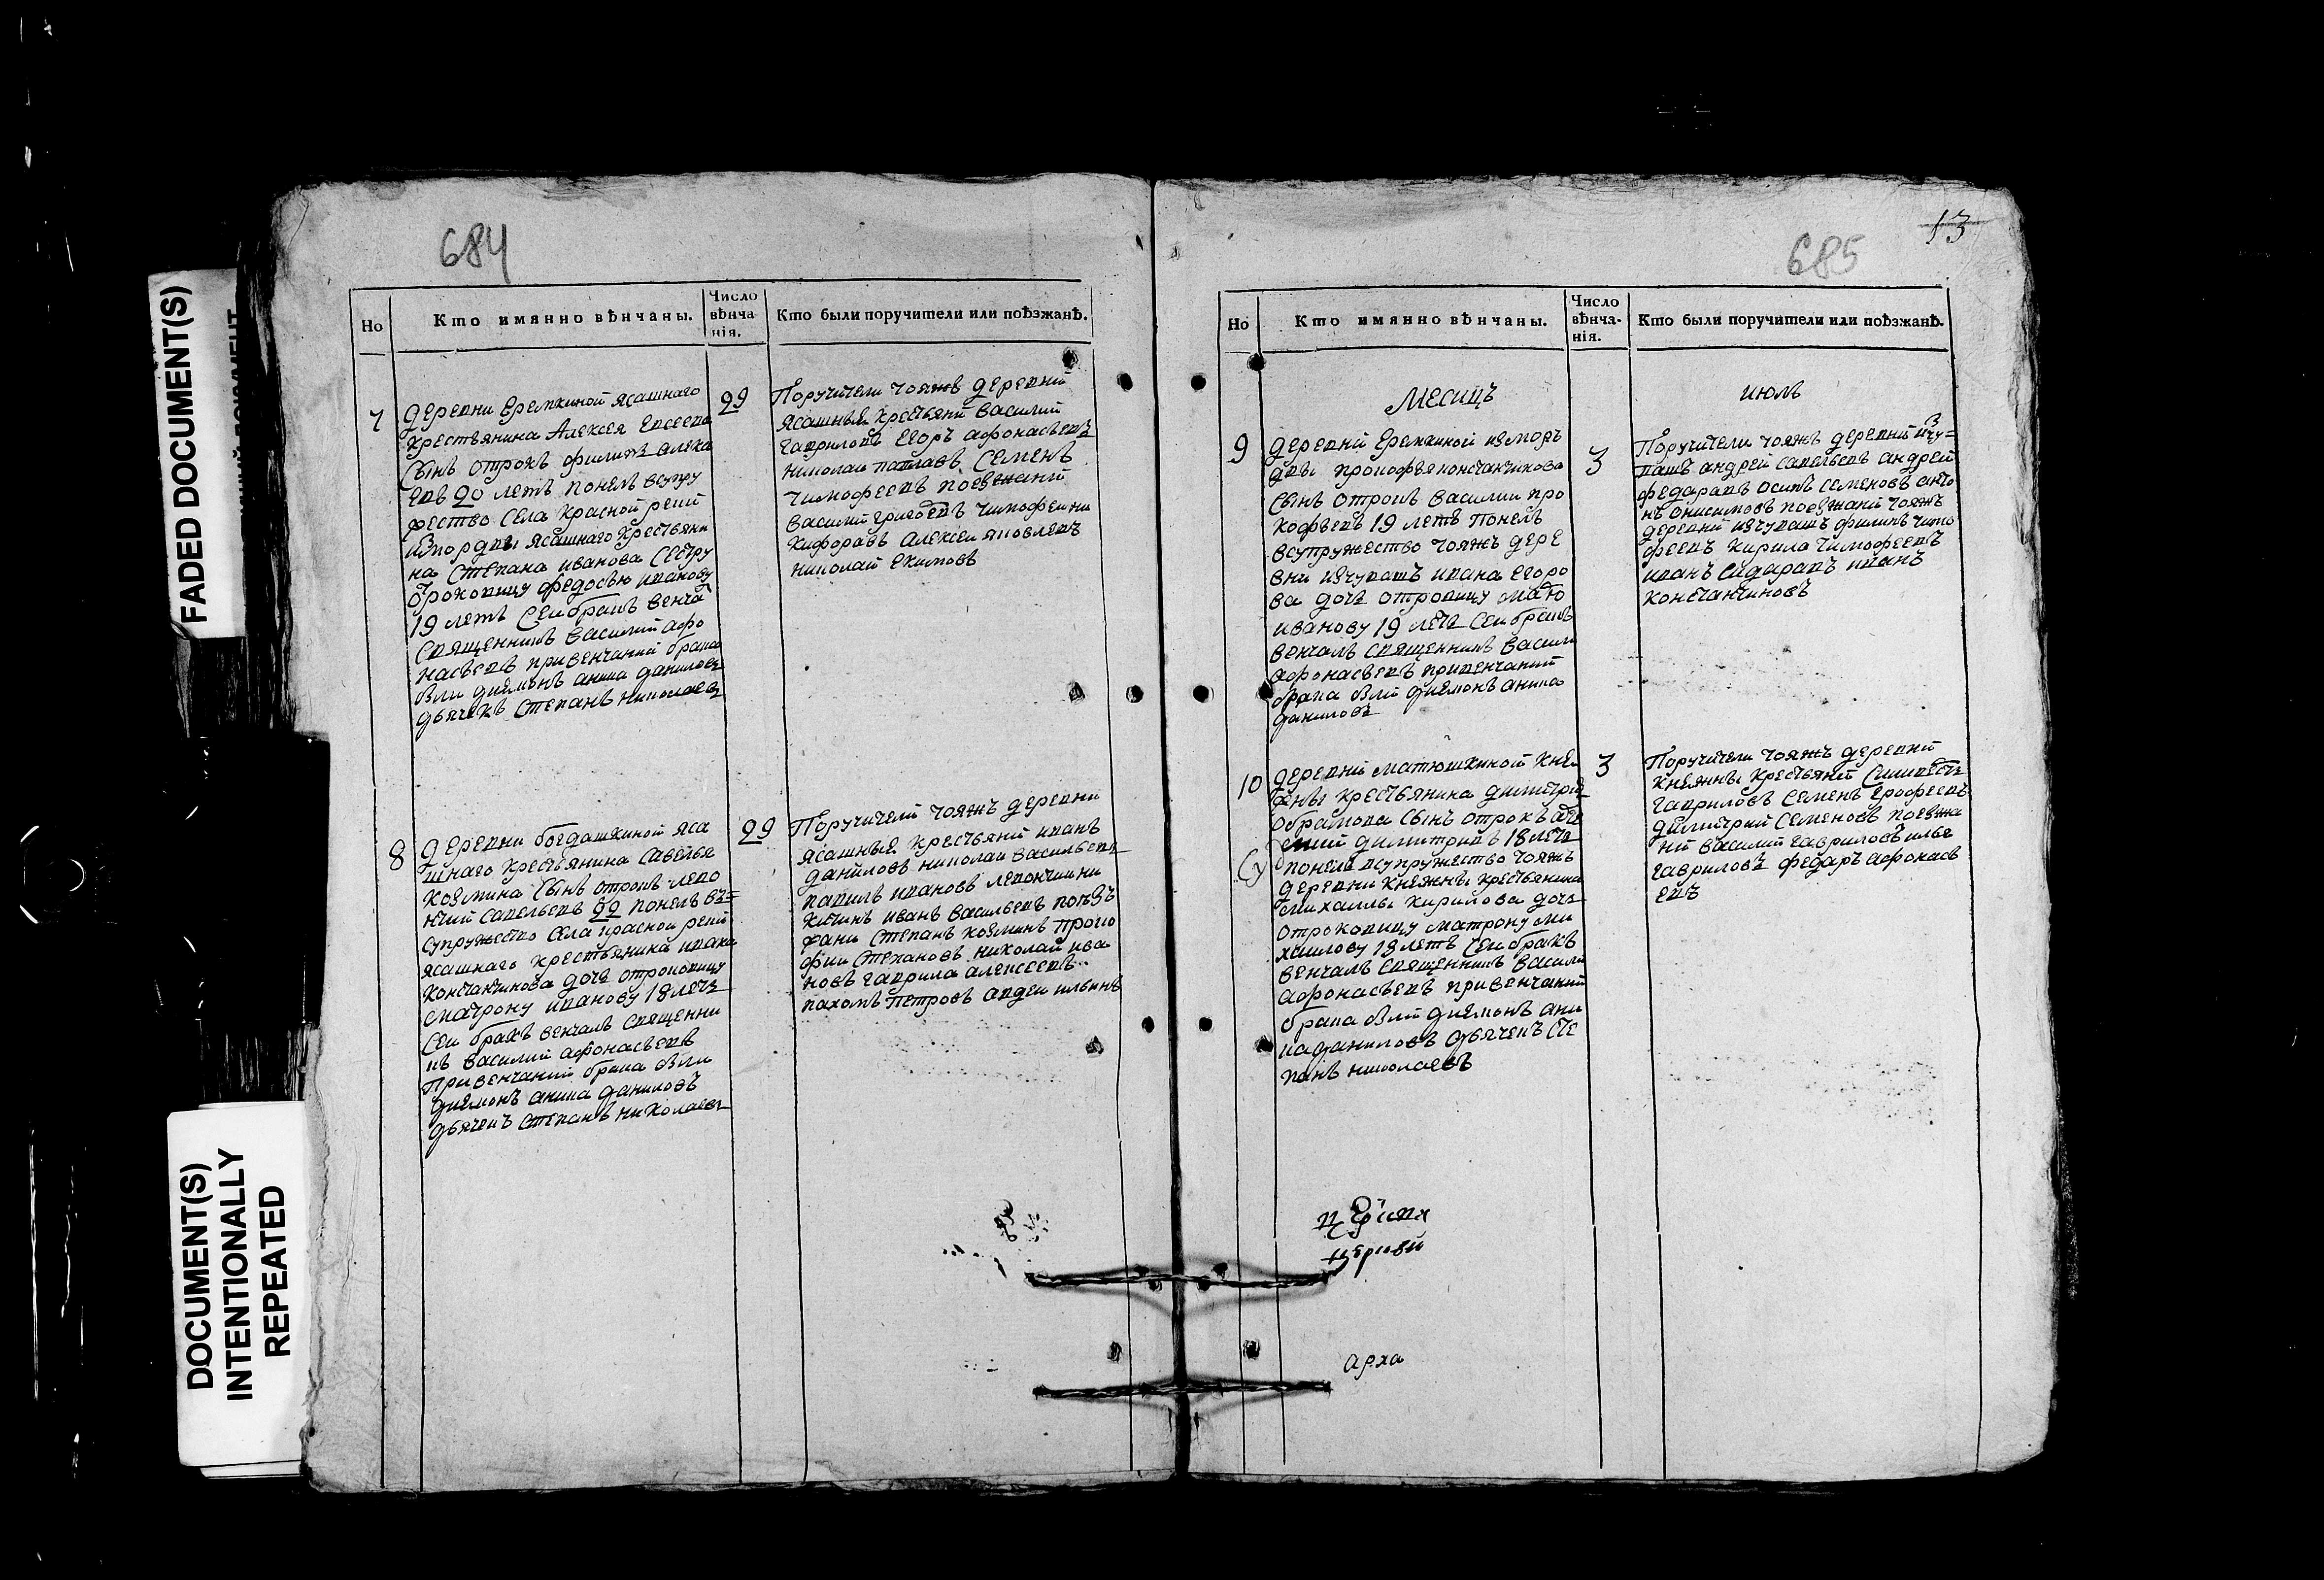 FADED DOCUMENT(S)
DOCUMENT(S)
INTENTIONALLY
REPEATED
684
Но
Кто имянно вѣнчаны.
Число
вѣнча
нія.
Кто были поручители или поѣзжанѣ.
7
деревни Еремкиной ясашнаго
крестьянина Алексея Евсеева
сынъ отрокъ филипъ алекс
еевъ 20 летъ понелъ всупру
жество села красной реки
измордвы ясашнаго крестьяни
на Степана иванова сестру
отроковицу федосью иванову
19 летъ Сеи бракъ венча
священникъ василий афо
насьевъ привенчании брака
были дияконъ аника даниловъ
дьячекъ Степанъ николаевъ
29
Поручители тояжъ деревни
ясашные крестьяни василий
гавриловъ Егоръ афонасьевъ
николаи павлавъ Семенъ
тимофеевъ поезжани
василий григоревъ тимофеи ни
кифоравъ алексеи яковлевъ
николай Екимовъ
8
деревни богдашкиной яса
шнаго крестьянина савелья
козмина сынъ отрокъ лево
нтий савельевъ 22 понелъ въ=
супружество села красной реки
ясашнаго крестьянина ивана
константинова дочь отроковицу
матрону иванову 18 летъ
Сеи бракъ венчалъ священни
къ василий афонасьевъ
Привенчании брака были
диаконъ аника даниловъ
дьячекъ степанъ николаевъ
29
Поручители тояжъ деревни
ясашные крестьяни иванъ
даниловъ николаи васильевъ
павилъ ивановъ левонтии ни
китинъ иванъ васильевъ поезъ
жани степанъ козминъ проко
фии степановъ николай ива
новъ гаврила алексеевъ
пахомъ петровъ авдеи ильинъ
13
685
Но
Кто имянно вѣнчаны.
Число
вѣнча-
нія.
Кто были поручители или поѣзжанѣ.
Месицъ
июль
9
деревни Еремкиной измор
двы прокофья константинова
сынъ отрокъ василии про
кофьевъ 19 летъ понелъ
всупружество тояжъ дере
вни изчувашъ ивана Егоро
ва дочь отровицу
иванову 19 летъ Сеи бракъ
венчалъ священникъ васили
афонасьевъ привенчании
брака были диаконъ аника
даниловъ
3
Поручители тояжъ деревни изчу=
вашъ андрей савельевъ андрей
федаравъ осипъ семеновъ анто
нъ анисимовъ поезжани тояжъ
деревни изчувашъ филипъ тимо
феевъ кирила тимофеевъ
иванъ сидаравъ иванъ
константиновъ
10
деревни матюшкиной кне
жны крестьянина димитрия
обрамова сынъ отрокъ
димитривъ 18 летъ
понелъ всупружество тояжъ
деревни кнежны крестьянина
михаилы кирилова дочь
отроковицу матрону ми
хаилову 19 летъ Сеи бракъ
венчалъ священникъ васили
афонасьевъ привенчании
брака были диаконъ ани
ка даниловъ дьячекъ сте
панъ николаевъ
3
Поручители тояжъ деревни
кнежны крестьяни Силивестъ
гавриловъ семенъ Ерофеевъ
димитрий семеновъ поезжа
ни василий гавриловъ илья
гавриловъ федаръ афонась
евъ
арха